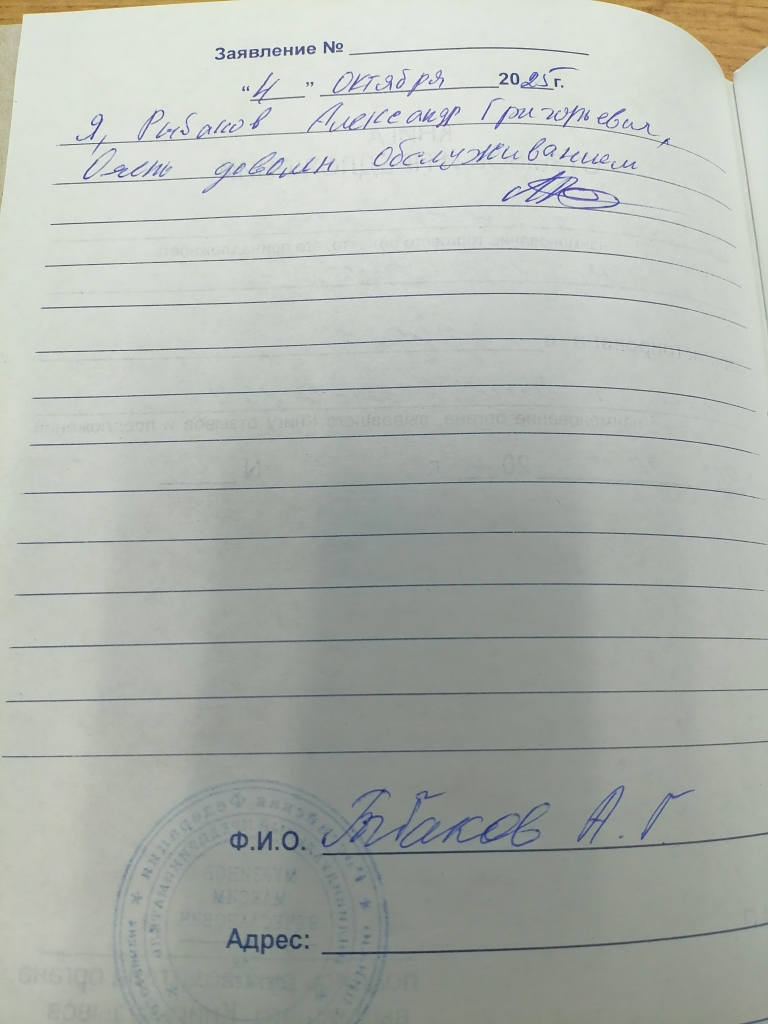 Заявление №
"4" октября 2025 г.
Я, Рыбаков Александр Григорьевич,
Очень доволен обслуживанием
Ф.И.О. Рыбаков А. Г.
Адрес: